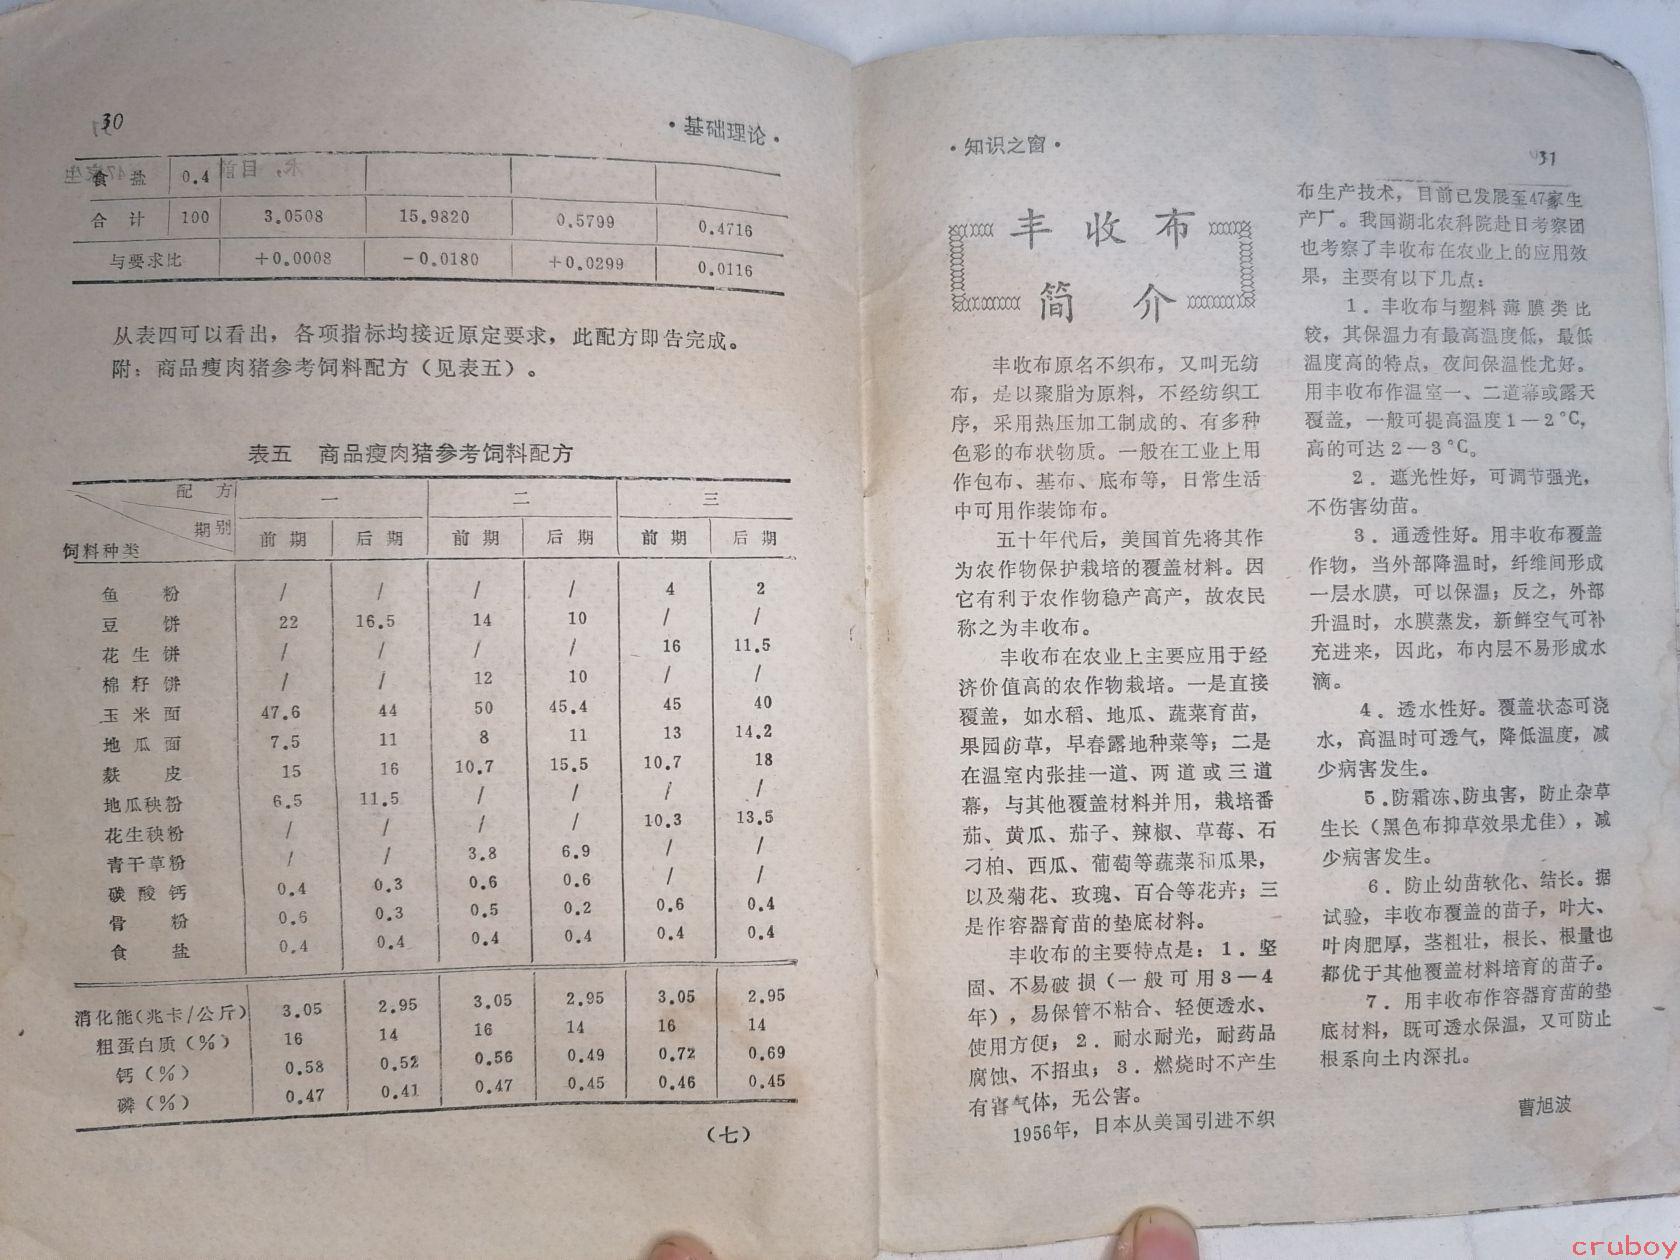 30
·基础理论·
食 盐 0.4
合 计 100 3.0508 15.9820 0.5799 0.4716
与要求比 +0.0008 -0.0180 +0.0299 0.0116
从表四可以看出，各项指标均接近原定要求，此配方即告完成。
附：商品瘦肉猪参考饲料配方（见表五）。
表五 商品瘦肉猪参考饲料配方
配 方 一 二 三
期别
饲料种类 前 期 后 期 前 期 后 期 前 期 后 期
鱼 粉 / / / / 4 2
豆 饼 22 16.5 14 10 / /
花 生 饼 / / / / 16 11.5
棉 籽 饼 / / 12 10 / /
玉 米 面 47.6 44 50 45.4 45 40
地 瓜 面 7.5 11 8 11 13 14.2
麸 皮 15 16 10.7 15.5 10.7 18
地瓜秧粉 6.5 11.5 / / / /
花生秧粉 / / / / 10.3 13.5
青干草粉 / / 3.8 6.9 / /
碳 酸 钙 0.4 0.3 0.6 0.6 / /
骨 粉 0.6 0.3 0.5 0.2 0.6 0.4
食 盐 0.4 0.4 0.4 0.4 0.4 0.4
消化能(兆卡/公斤) 3.05 2.95 3.05 2.95 3.05 2.95
粗蛋白质(%) 16 14 16 14 16 14
钙(%) 0.58 0.52 0.56 0.49 0.72 0.69
磷(%) 0.47 0.41 0.47 0.45 0.46 0.45
(七)
·知识之窗·
31
丰 收 布
简 介
丰收布原名不织布，又叫无纺
布，是以聚脂为原料，不经纺织工
序，采用热压加工制成的、有多种
色彩的布状物质。一般在工业上用
作包布、基布、底布等，日常生活
中可用作装饰布。
五十年代后，美国首先将其作
为农作物保护栽培的覆盖材料。因
它有利于农作物稳产高产，故农民
称之为丰收布。
丰收布在农业上主要应用于经
济价值高的农作物栽培。一是直接
覆盖，如水稻、地瓜、蔬菜育苗，
果园防草，早春露地种菜等；二是
在温室内张挂一道、两道或三道
幕，与其他覆盖材料并用，栽培番
茄、黄瓜、茄子、辣椒、草莓、石
刁柏、西瓜、葡萄等蔬菜和瓜果，
以及菊花、玫瑰、百合等花卉；三
是作容器育苗的垫底材料。
丰收布的主要特点是：1．坚
固、不易破损(一般可用3—4
年)，易保管不粘合、轻便透水、
使用方便；2．耐水耐光，耐药品
腐蚀、不招虫；3．燃烧时不产生
有害气体，无公害。
1956年，日本从美国引进不织
布生产技术，目前已发展至47家生
产厂。我国湖北农科院赴日考察团
也考察了丰收布在农业上的应用效
果，主要有以下几点：
1．丰收布与塑料薄膜类比
较，其保温力有最高温度低，最低
温度高的特点，夜间保温性尤好。
用丰收布作温室一、二道幕或露天
覆盖，一般可提高温度1—2℃，
高的可达2—3℃。
2．遮光性好，可调节强光，
不伤害幼苗。
3．通透性好。用丰收布覆盖
作物，当外部降温时，纤维间形成
一层水膜，可以保温；反之，外部
升温时，水膜蒸发，新鲜空气可补
充进来，因此，布内层不易形成水
滴。
4．透水性好。覆盖状态可浇
水，高温时可透气，降低温度，减
少病害发生。
5.防霜冻、防虫害，防止杂草
生长(黑色布抑草效果尤佳)，减
少病害发生。
6．防止幼苗软化、结长。据
试验，丰收布覆盖的苗子，叶大、
叶肉肥厚，茎粗壮，根长、根量也
都优于其他覆盖材料培育的苗子。
7．用丰收布作容器育苗的垫
底材料，既可透水保温，又可防止
根系向土内深扎。
曹旭波
cruboy